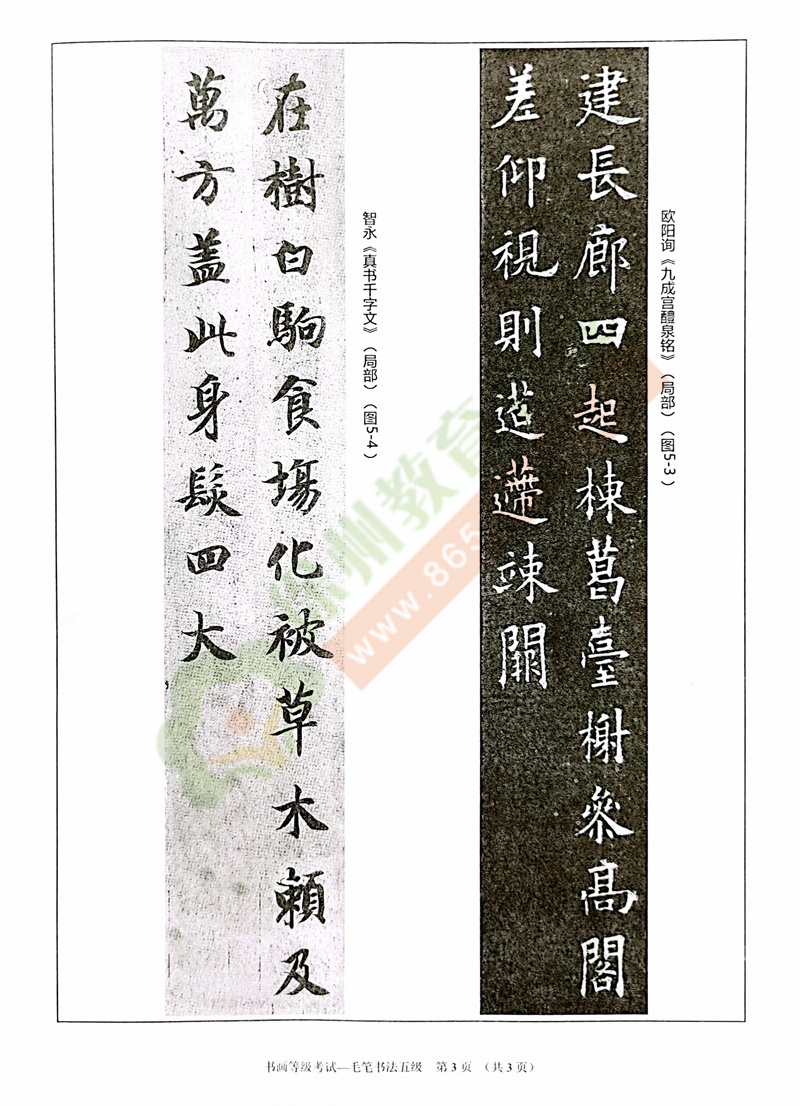 建長廊四起棟葛臺榭叅髙閣
差仰視則迢遰竦闕
欧阳询《九成宫醴泉铭》（局部）（图5-3）
智永《真书千字文》（局部）（图5-4）
在樹白駒食塲化被草木賴及
萬方盖此身髮四大
州教育
www.865
书画等级考试—毛笔书法五级 第3页 （共3页）